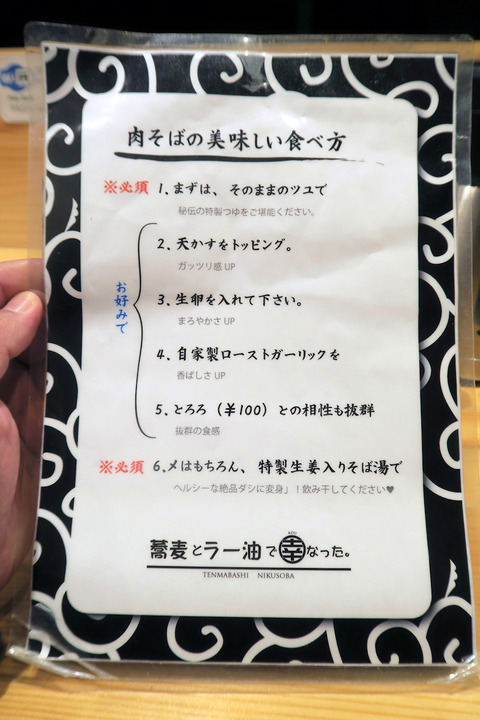 肉そばの美味しい食べ方
※必須 1、まずは、そのままのツユで
秘伝の特製つゆをご堪能ください。
お好みで
2、天かすをトッピング。
ガッツリ感 UP
3、生卵を入れて下さい。
まろやかさ UP
4、自家製ローストガーリックを
香ばしさ UP
5、とろろ（￥100）との相性も抜群
抜群の食感
※必須 6、〆はもちろん、特製生姜入りそば湯で
ヘルシーな絶品ダシに変身」！飲み干してください♥
蕎麦とラー油で幸なった。
TENMABASHI NIKUSOBA